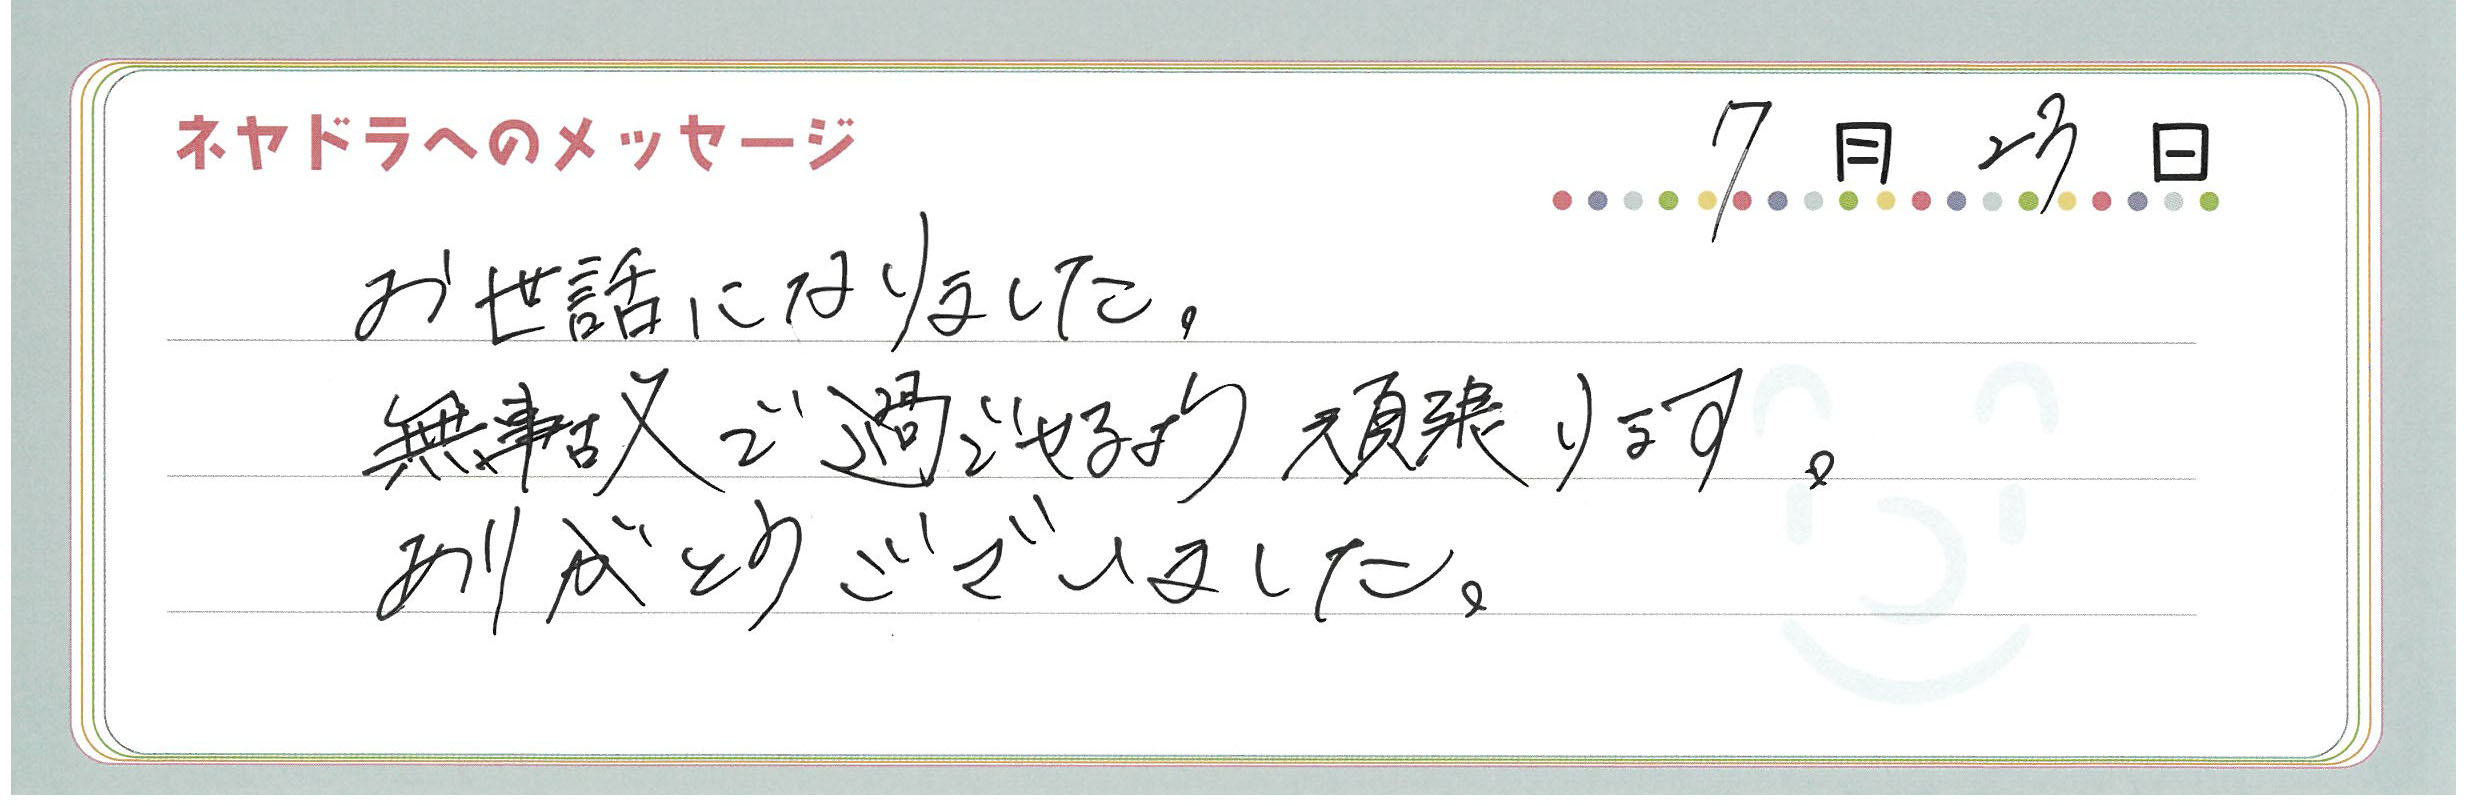 ネヤドラへのメッセージ
7月 23日
お世話になりました。
無事故で過ごせるよう頑張ります。
ありがとうございました。